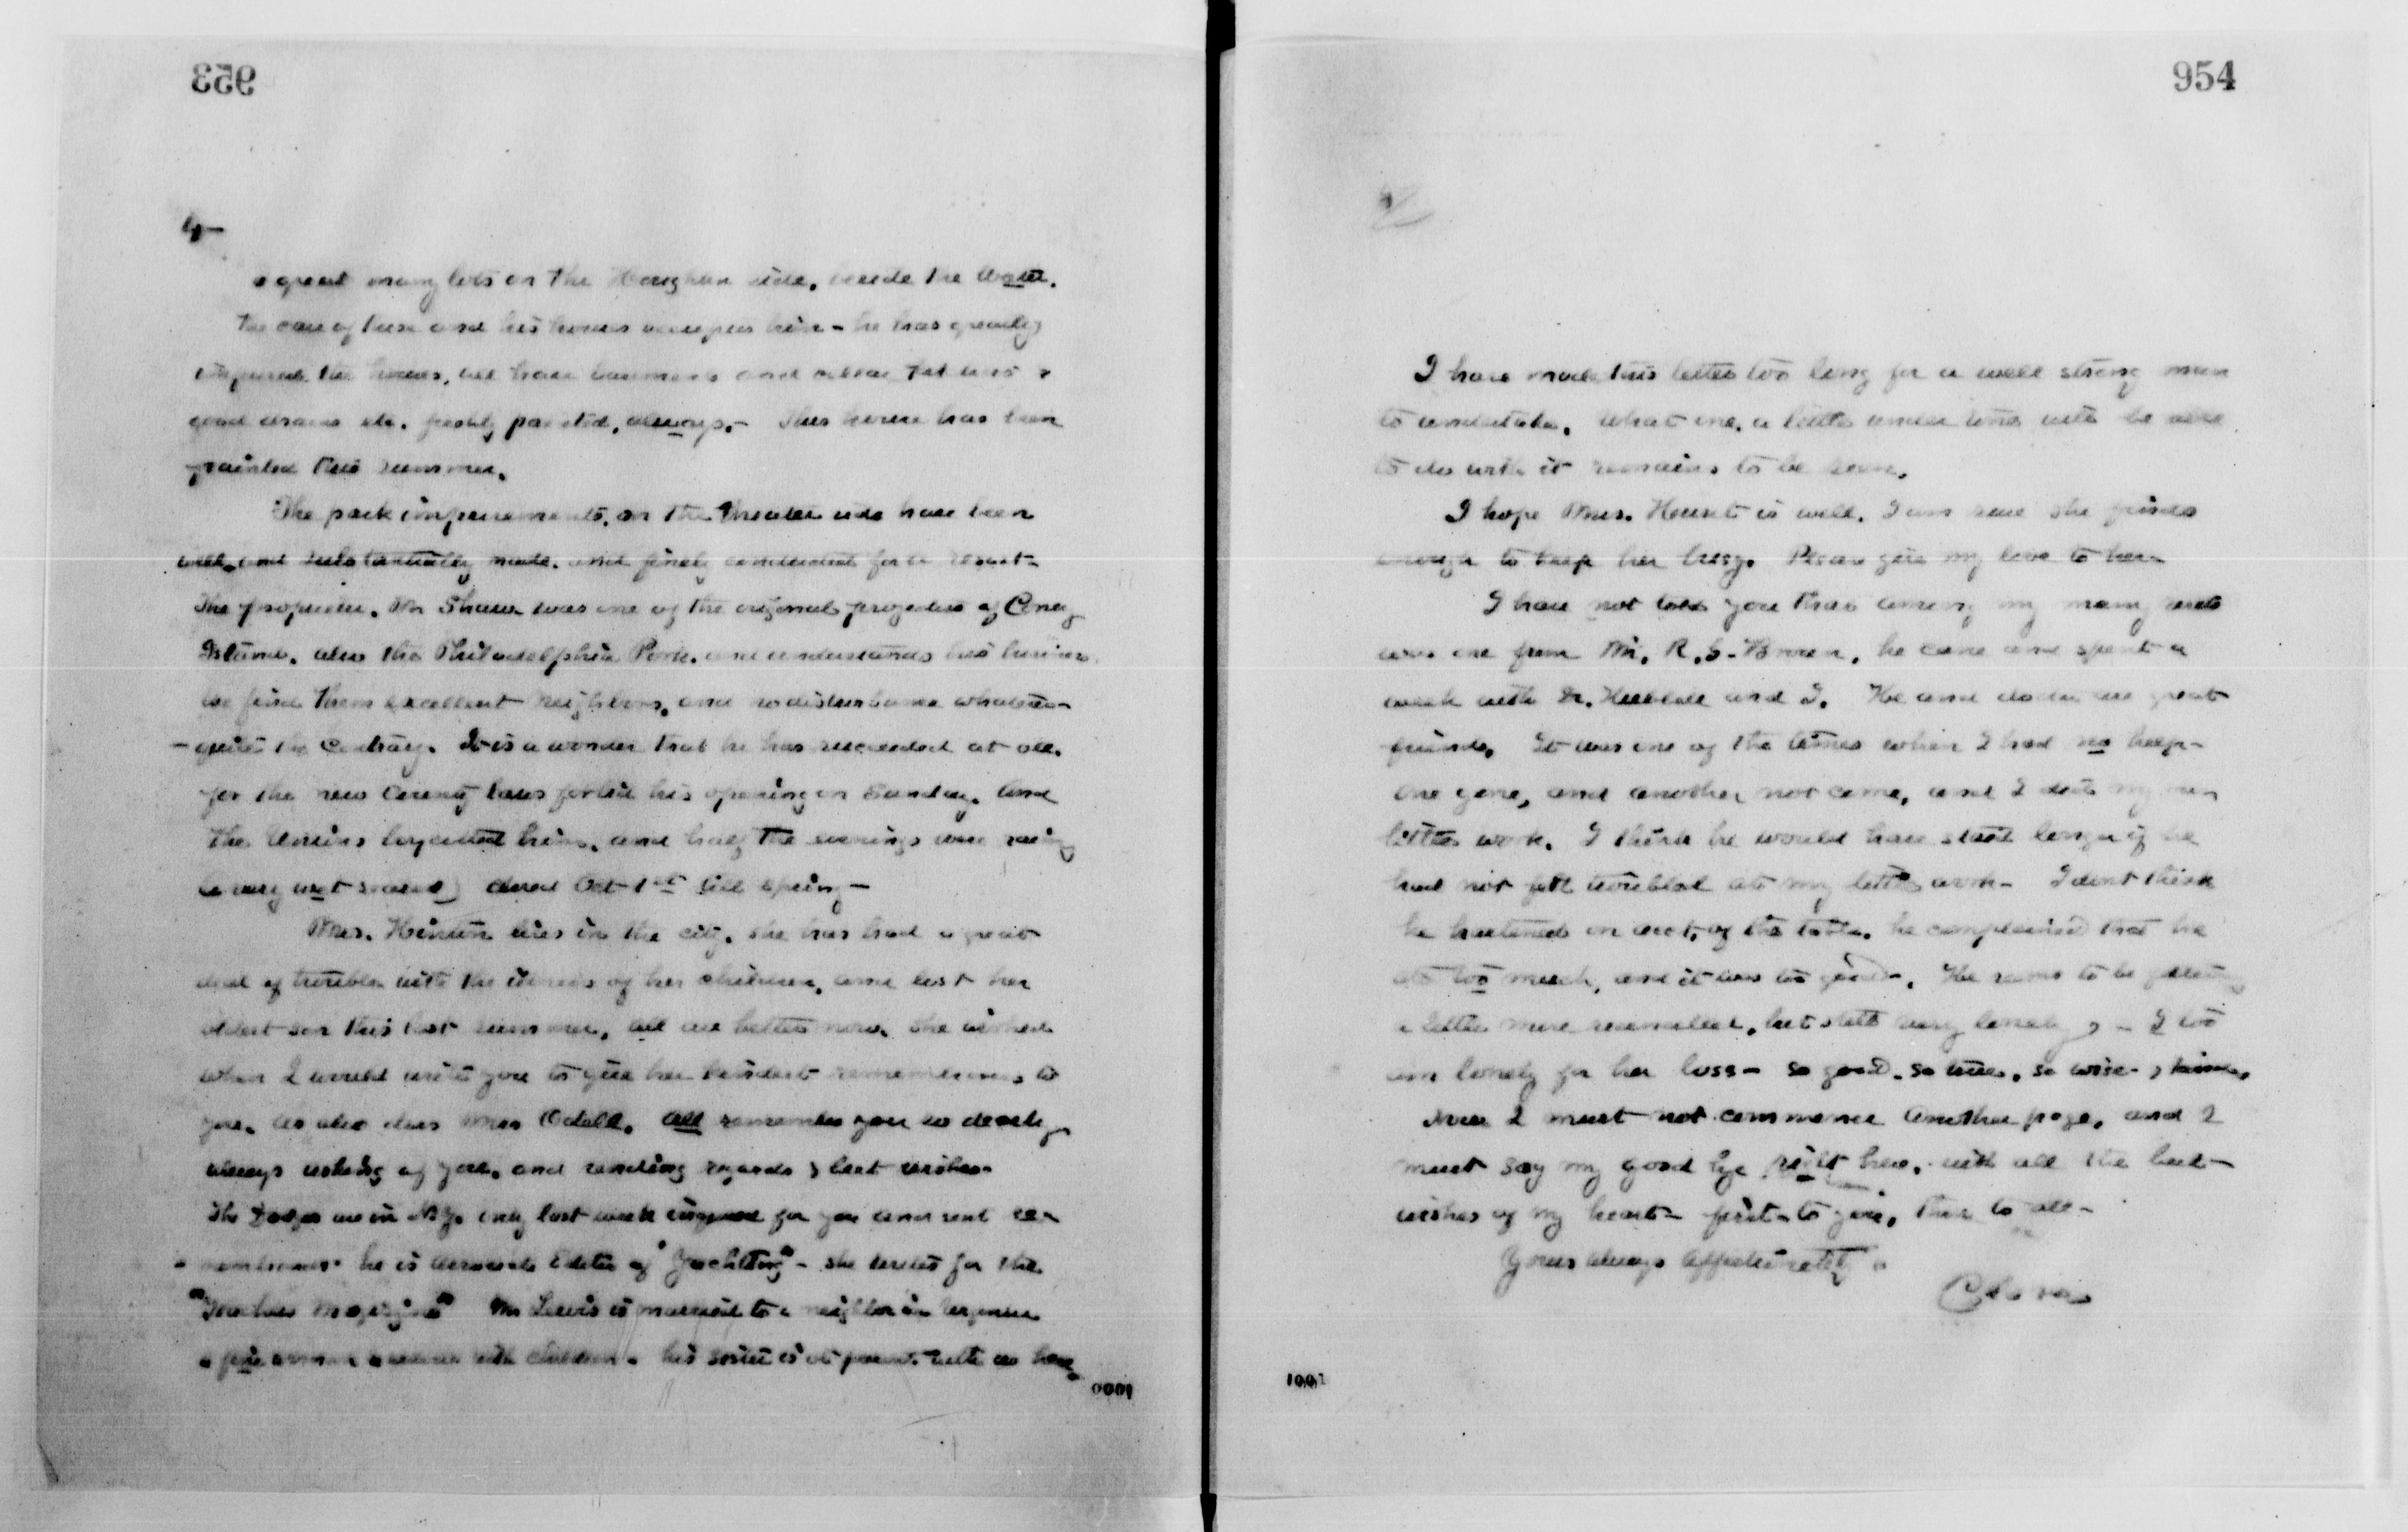 953
4-
a great many lots on the Houghton side, beside the water.
The care of these and his houses occupies him - he has greatly
improved the houses, all have basements and
good drains etc. freshly painted, always. - This house has been
painted this summer.
The park improvements, on the Theater side have been
well, and substantially made, and finely conducted for a resort -
The proprietor, Mr Shaw was one of the original projectors of Coney
Island, also the Philadelphia Park, and understands his business
we find them excellent neighbors, and no disturbance whatever -
- quite the contrary. It is a wonder that he has succeeded at all.
for the new County laws forbid his opening on Sunday. And
the Unions boycotted him, and half the evenings were rainy
(a very wet season) closed Oct 1st till spring -
Mrs. Hinton lives in the city. she has had a great
deal of trouble with the illness of her children, and lost her
oldest son this last summer, all are better now. She wished
when I would write you to give her kindest remembrances to
you, as also does Mrs Odell. All remember you so dearly
always asking of you, and sending regards & best wishes -
The Dodges are in N.Y. only last week inquired for you and sent re-
- membrances. he is Associate Editor of "Yachting" - she writes for the
Magazine" Mr Lewis is married to a neighbor in
a fine woman a widow with children. his sister is at present with us here,
0001
954
I have made this letter too long for a well strong man
to undertake. What one, a little under tone will be able
to do with it remains to be seen.
I hope Mrs. is well. I am sure she finds
enough to keep her busy. Please give my love to her -
I have not told you that among my many visits
was one from Mr. R. S. Brown, he came and spent a
week with Dr. Hubbell and I. He and doctor are great
friends. It was one of the times when I had no help -
one gone, and another not come, and I did my own
little work. I think he would have staid longer if he
had not felt troubled at my little work - I dont think
he hastened on acct, of the table. he complained that he
ate too much, and it was too good -. He seems to be getting
a little more reconciled, but still very lonely, - I too
am lonely for her loss - so good, so true, so wise & kind,
Now I must not commence another page, and I
must say my good bye right here, with all the best
wishes of my heart - first - to you, then to all -
Yours always affectionately
Clara
1001